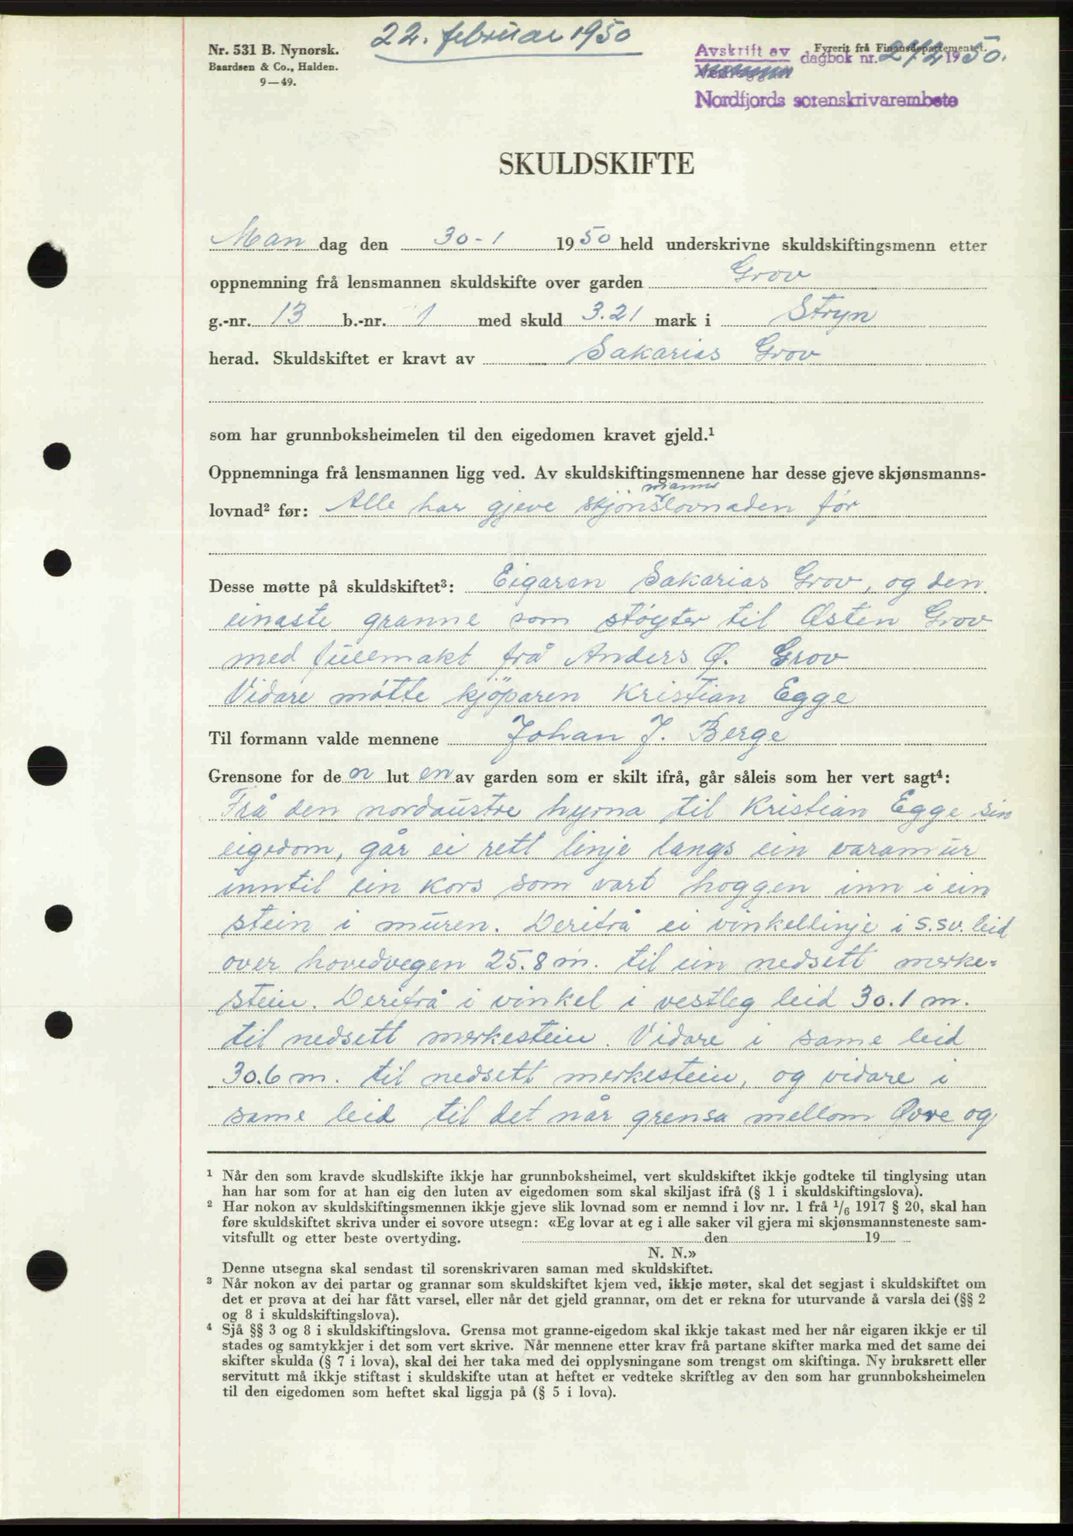 22. februar 1950
Nr. 531 B. Nynorsk.
Baardsen & Co., Halden.
9—49.
Fyrerit frå Finansdepartementet.
Avskrift av dagbok nr. 274 1950.
Nordfjords sorenskrivarembete
SKULDSKIFTE
Man dag den 30-1 1950 held underskrivne skuldskiftingsmenn etter
oppnemning frå lensmannen skuldskifte over garden Grov
g.-nr. 13 b.-nr. 1 med skuld 3.21 mark i Stryn
herad. Skuldskiftet er kravt av Sakarias Grov
som har grunnboksheimelen til den eigedomen kravet gjeld.¹
Oppnemninga frå lensmannen ligg ved. Av skuldskiftingsmennene har desse gjeve skjønsmanns-
manns
lovnad² før: Alle har gjeve skjönslovnaden før
Desse møtte på skuldskiftet³: Eigaren Sakarias Grov, og den
einaste granne som støyter til Østen Grov
med fullmakt frå Anders Ø. Grov
Vidare møtte kjöparen Kristian Egge
Til formann valde mennene Johan J. Berge
Grensone for de n lut en av garden som er skilt ifrå, går såleis som her vert sagt⁴:
Frå den nordaustre hyrna til Kristian Egge sin
eigedom, går ei rett linje langs ein varamur
inntil ein kors som vart hoggen inn i ein
stein i muren. Derifrå ei vinkellinje i s.sv. leid
over hovedvegen 25.8 m. til ein nedsett merke-
stein. Derifrå i vinkel i vestleg leid 30.1 m.
til nedsett merkestein. Vidare i same leid
30.6 m. til nedsett merkestein, og vidare i
same leid til det når grensa mellom Øvre og
¹ Når den som kravde skudlskifte ikkje har grunnboksheimel, vert skuldskiftet ikkje godteke til tinglysing utan
han har som for at han eig den luten av eigedomen som skal skiljast ifrå (§ 1 i skuldskiftingslova).
² Har nokon av skuldskiftingsmennen ikkje gjeve slik lovnad som er nemnd i lov nr. 1 frå ¹/₆ 1917 § 20, skal han
føre skuldskiftet skriva under ei sovore utsegn: «Eg lovar at eg i alle saker vil gjera mi skjønsmannsteneste sam-
vitsfullt og etter beste overtyding. den 19
N. N.»
Denne utsegna skal sendast til sorenskrivaren saman med skuldskiftet.
³ Når nokon av dei partar og grannar som skuldskiftet kjem ved, ikkje møter, skal det segjast i skuldskiftet om
det er prøva at dei har fått varsel, eller når det gjeld grannar, om det er rekna for uturvande å varsla dei (§§ 2
og 8 i skuldskiftingslova).
⁴ Sjå §§ 3 og 8 i skuldskiftingslova. Grensa mot granne-eigedom skal ikkje takast med her når eigaren ikkje er til
stades og samtykkjer i det som vert skrive. Når mennene etter krav frå partane skifter marka med det same dei
skifter skulda (§ 7 i lova), skal dei her taka med dei opplysningane som trengst om skiftinga. Ny bruksrett eller
servitutt må ikkje stiftast i skuldskifte utan at heftet er vedteke skriftleg av den som har grunnboksheimelen
til den eigedomen som heftet skal liggja på (§ 5 i lova).